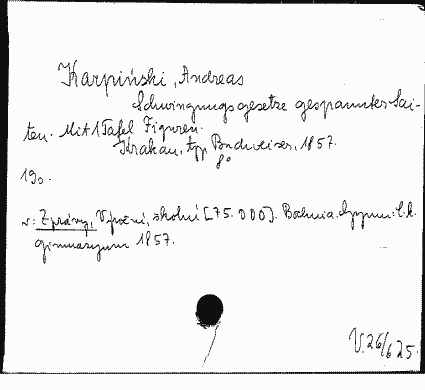 Karpiński, Andreas
Schwingungsgesetze gespannter Sai-
ten. Mit 1 Tafel Figuren.
Krakau, typ. Budweiser, 1857.
8°
190.
v: Zprávy, Výroční, školní [75.000]. Bochnia. Gymn: c. k.
gimnazyum 1857.
V.26/625.